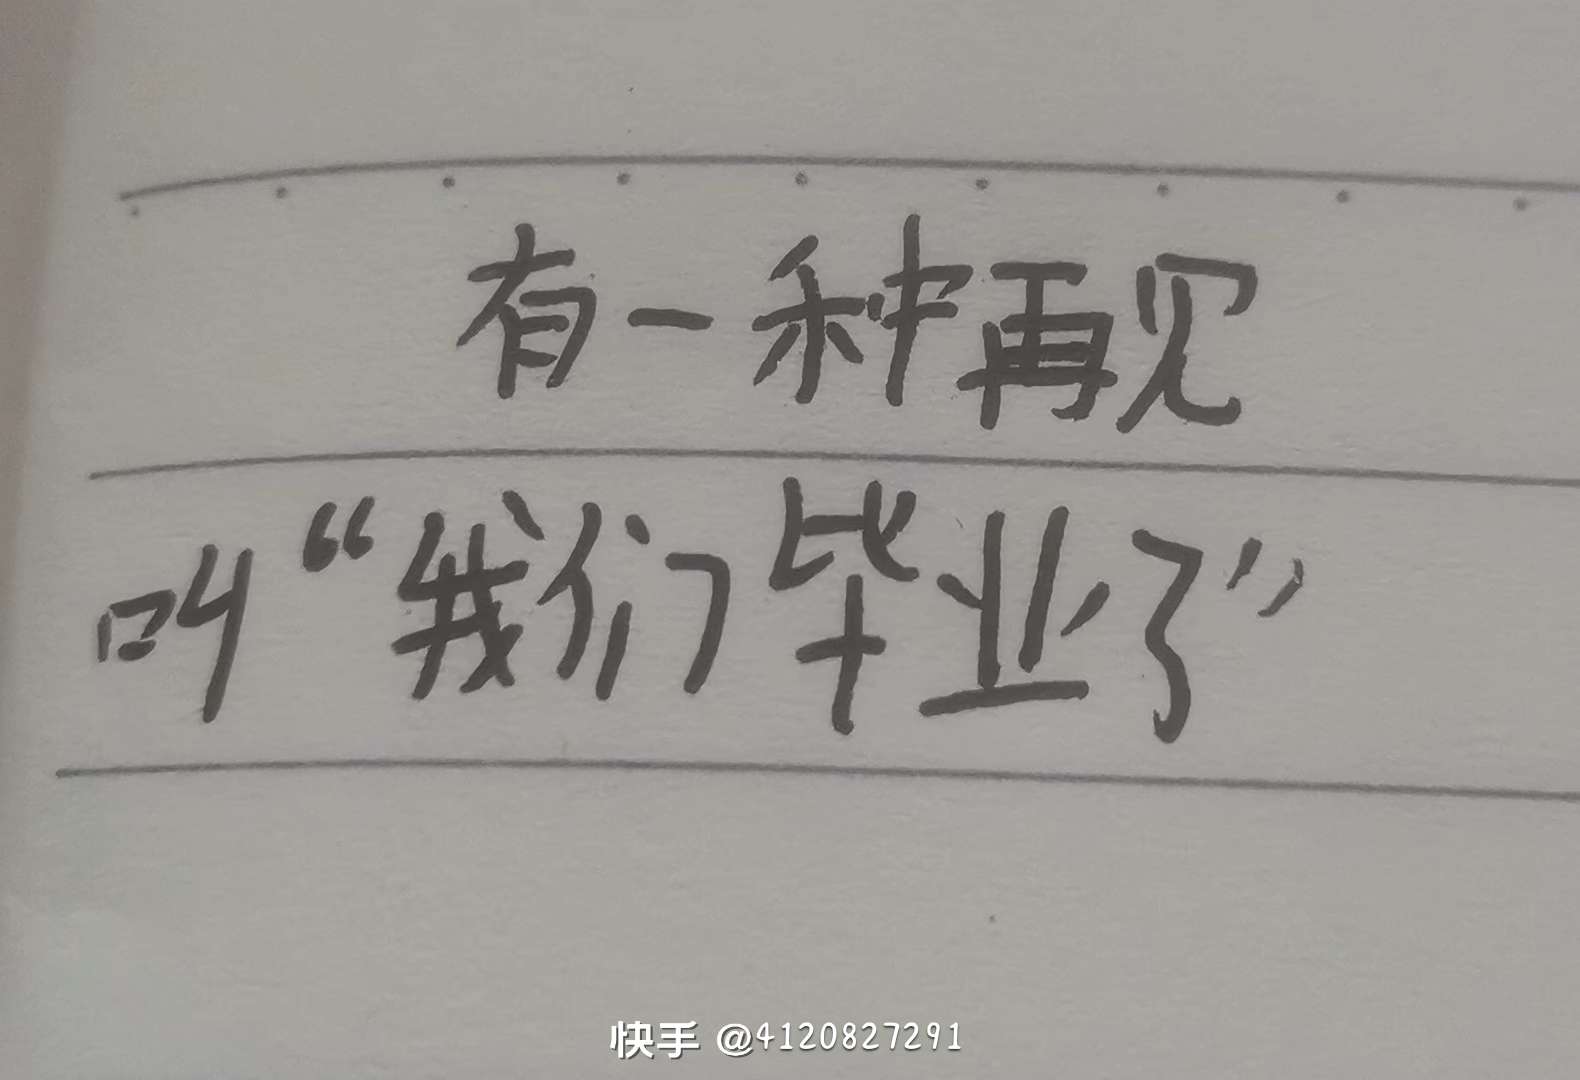 有一种再见
叫“我们毕业了”
快手 @4120827291